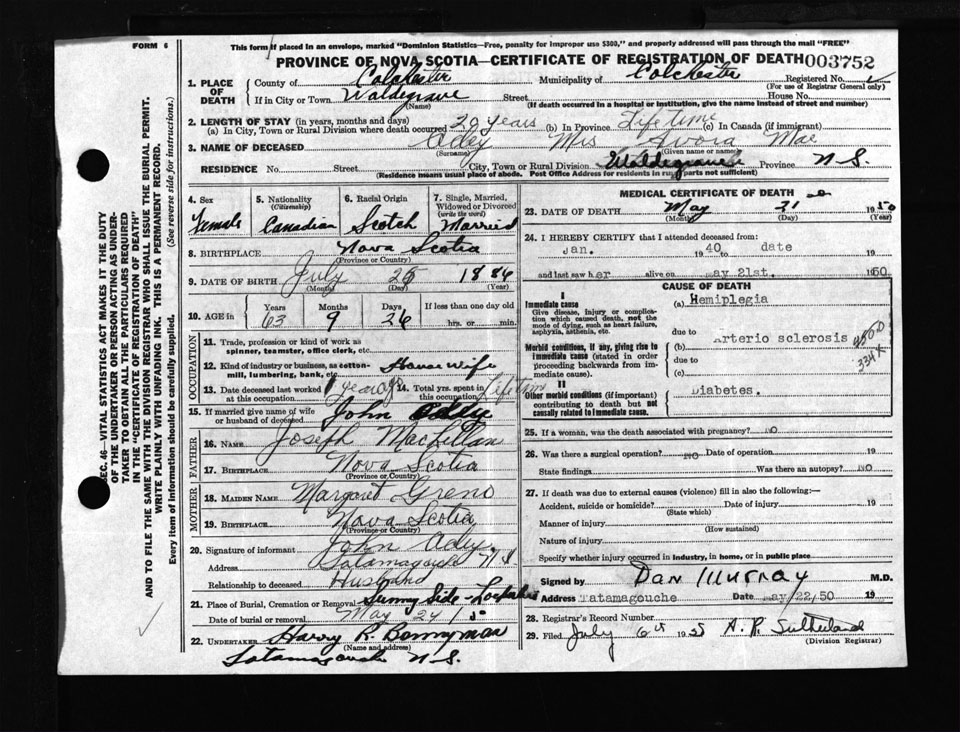 FORM 6
This form if placed in an envelope, marked "Dominion Statistics—Free, penalty for improper use $300," and properly addressed will pass through the mail "FREE"
PROVINCE OF NOVA SCOTIA—CERTIFICATE OF REGISTRATION OF DEATH 003752
1. PLACE OF DEATH
County of Colchester Municipality of Colchester Registered No.
(For use of Registrar General only)
If in City or Town Waldegrave Street House No.
(Name) (If death occurred in a hospital or institution, give the name instead of street and number)
2. LENGTH OF STAY (in years, months and days)
(a) In City, Town or Rural Division where death occurred 20 years (b) In Province Life time (c) In Canada (if immigrant)
3. NAME OF DECEASED Adey Mrs Avora Mae
(Surname) (Given name or names)
RESIDENCE No. Street City, Town or Rural Division Waldegrave Province N.S.
(Residence means usual place of abode. Post Office Address for residents in rural parts not sufficient)
4. Sex Female
5. Nationality (Citizenship) Canadian
6. Racial Origin Scotch
7. Single, Married, Widowed or Divorced (write the word) Married
8. BIRTHPLACE Nova Scotia
(Province or Country)
9. DATE OF BIRTH July 25 1886
(Month) (Day) (Year)
10. AGE in Years 63 Months 9 Days 26 If less than one day old
hrs. or min.
OCCUPATION
11. Trade, profession or kind of work as spinner, teamster, office clerk, etc.
12. Kind of industry or business, as cotton-mill, lumbering, bank, etc. House wife
13. Date deceased last worked at this occupation year ago 14. Total yrs. spent in this occupation Lifetime
15. If married give name of wife or husband of deceased John Adey
FATHER
16. NAME Joseph MacLellan
17. BIRTHPLACE Nova Scotia
(Province or Country)
MOTHER
18. MAIDEN NAME Margaret Greno
19. BIRTHPLACE Nova Scotia
(Province or Country)
20. Signature of informant John Adey
Address Tatamagouche N S
Relationship to deceased Husband
21. Place of Burial, Cremation or Removal Sunny Side
Date of burial or removal May 24
22. UNDERTAKER Harry R. Bonnyman
(Name and address)
Tatamagouche N.S.
MEDICAL CERTIFICATE OF DEATH
23. DATE OF DEATH May 21 1950
(Month) (Day) (Year)
24. I HEREBY CERTIFY that I attended deceased from:
Jan. 1940 date
and last saw her alive on May 21st. 1950
CAUSE OF DEATH
I
Immediate cause (a) Hemiplegia
Give disease, injury or complication which caused death, not the mode of dying, such as heart failure, asphyxia, asthenia, etc.
due to
Morbid conditions, if any, giving rise to immediate cause (stated in order proceeding backwards from immediate cause).
(b) Arterio sclerosis
334 X
due to
(c)
II
Other morbid conditions (if important) contributing to death but not causally related to immediate cause.
Diabetes.
25. If a woman, was the death associated with pregnancy? NO
26. Was there a surgical operation? NO Date of operation 19
State findings Was there an autopsy? NO
27. If death was due to external causes (violence) fill in also the following:—
Accident, suicide or homicide? Date of injury 19
(State which)
Manner of injury
(How sustained)
Nature of injury
Specify whether injury occurred in industry, in home, or in public place
Signed by Dan Murray M.D.
Address Tatamagouche Date May/22/50 19
28. Registrar's Record Number
29. Filed July 6th A. R. Sutherland
(Division Registrar)
SEC. 46—VITAL STATISTICS ACT MAKES IT THE DUTY
OF THE UNDERTAKER OR PERSON ACTING AS UNDER-
TAKER TO OBTAIN ALL THE PARTICULARS REQUIRED
IN THE "CERTIFICATE OF REGISTRATION OF DEATH"
AND TO FILE THE SAME WITH THE DIVISION REGISTRAR WHO SHALL ISSUE THE BURIAL PERMIT.
WRITE PLAINLY WITH UNFADING INK. THIS IS A PERMANENT RECORD.
Every item of information should be carefully supplied. (See reverse side for instructions.)